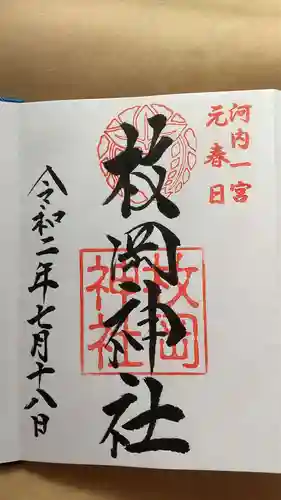 河内一宮
元春日
枚岡神社
枚岡
神社
令和二年七月十八日